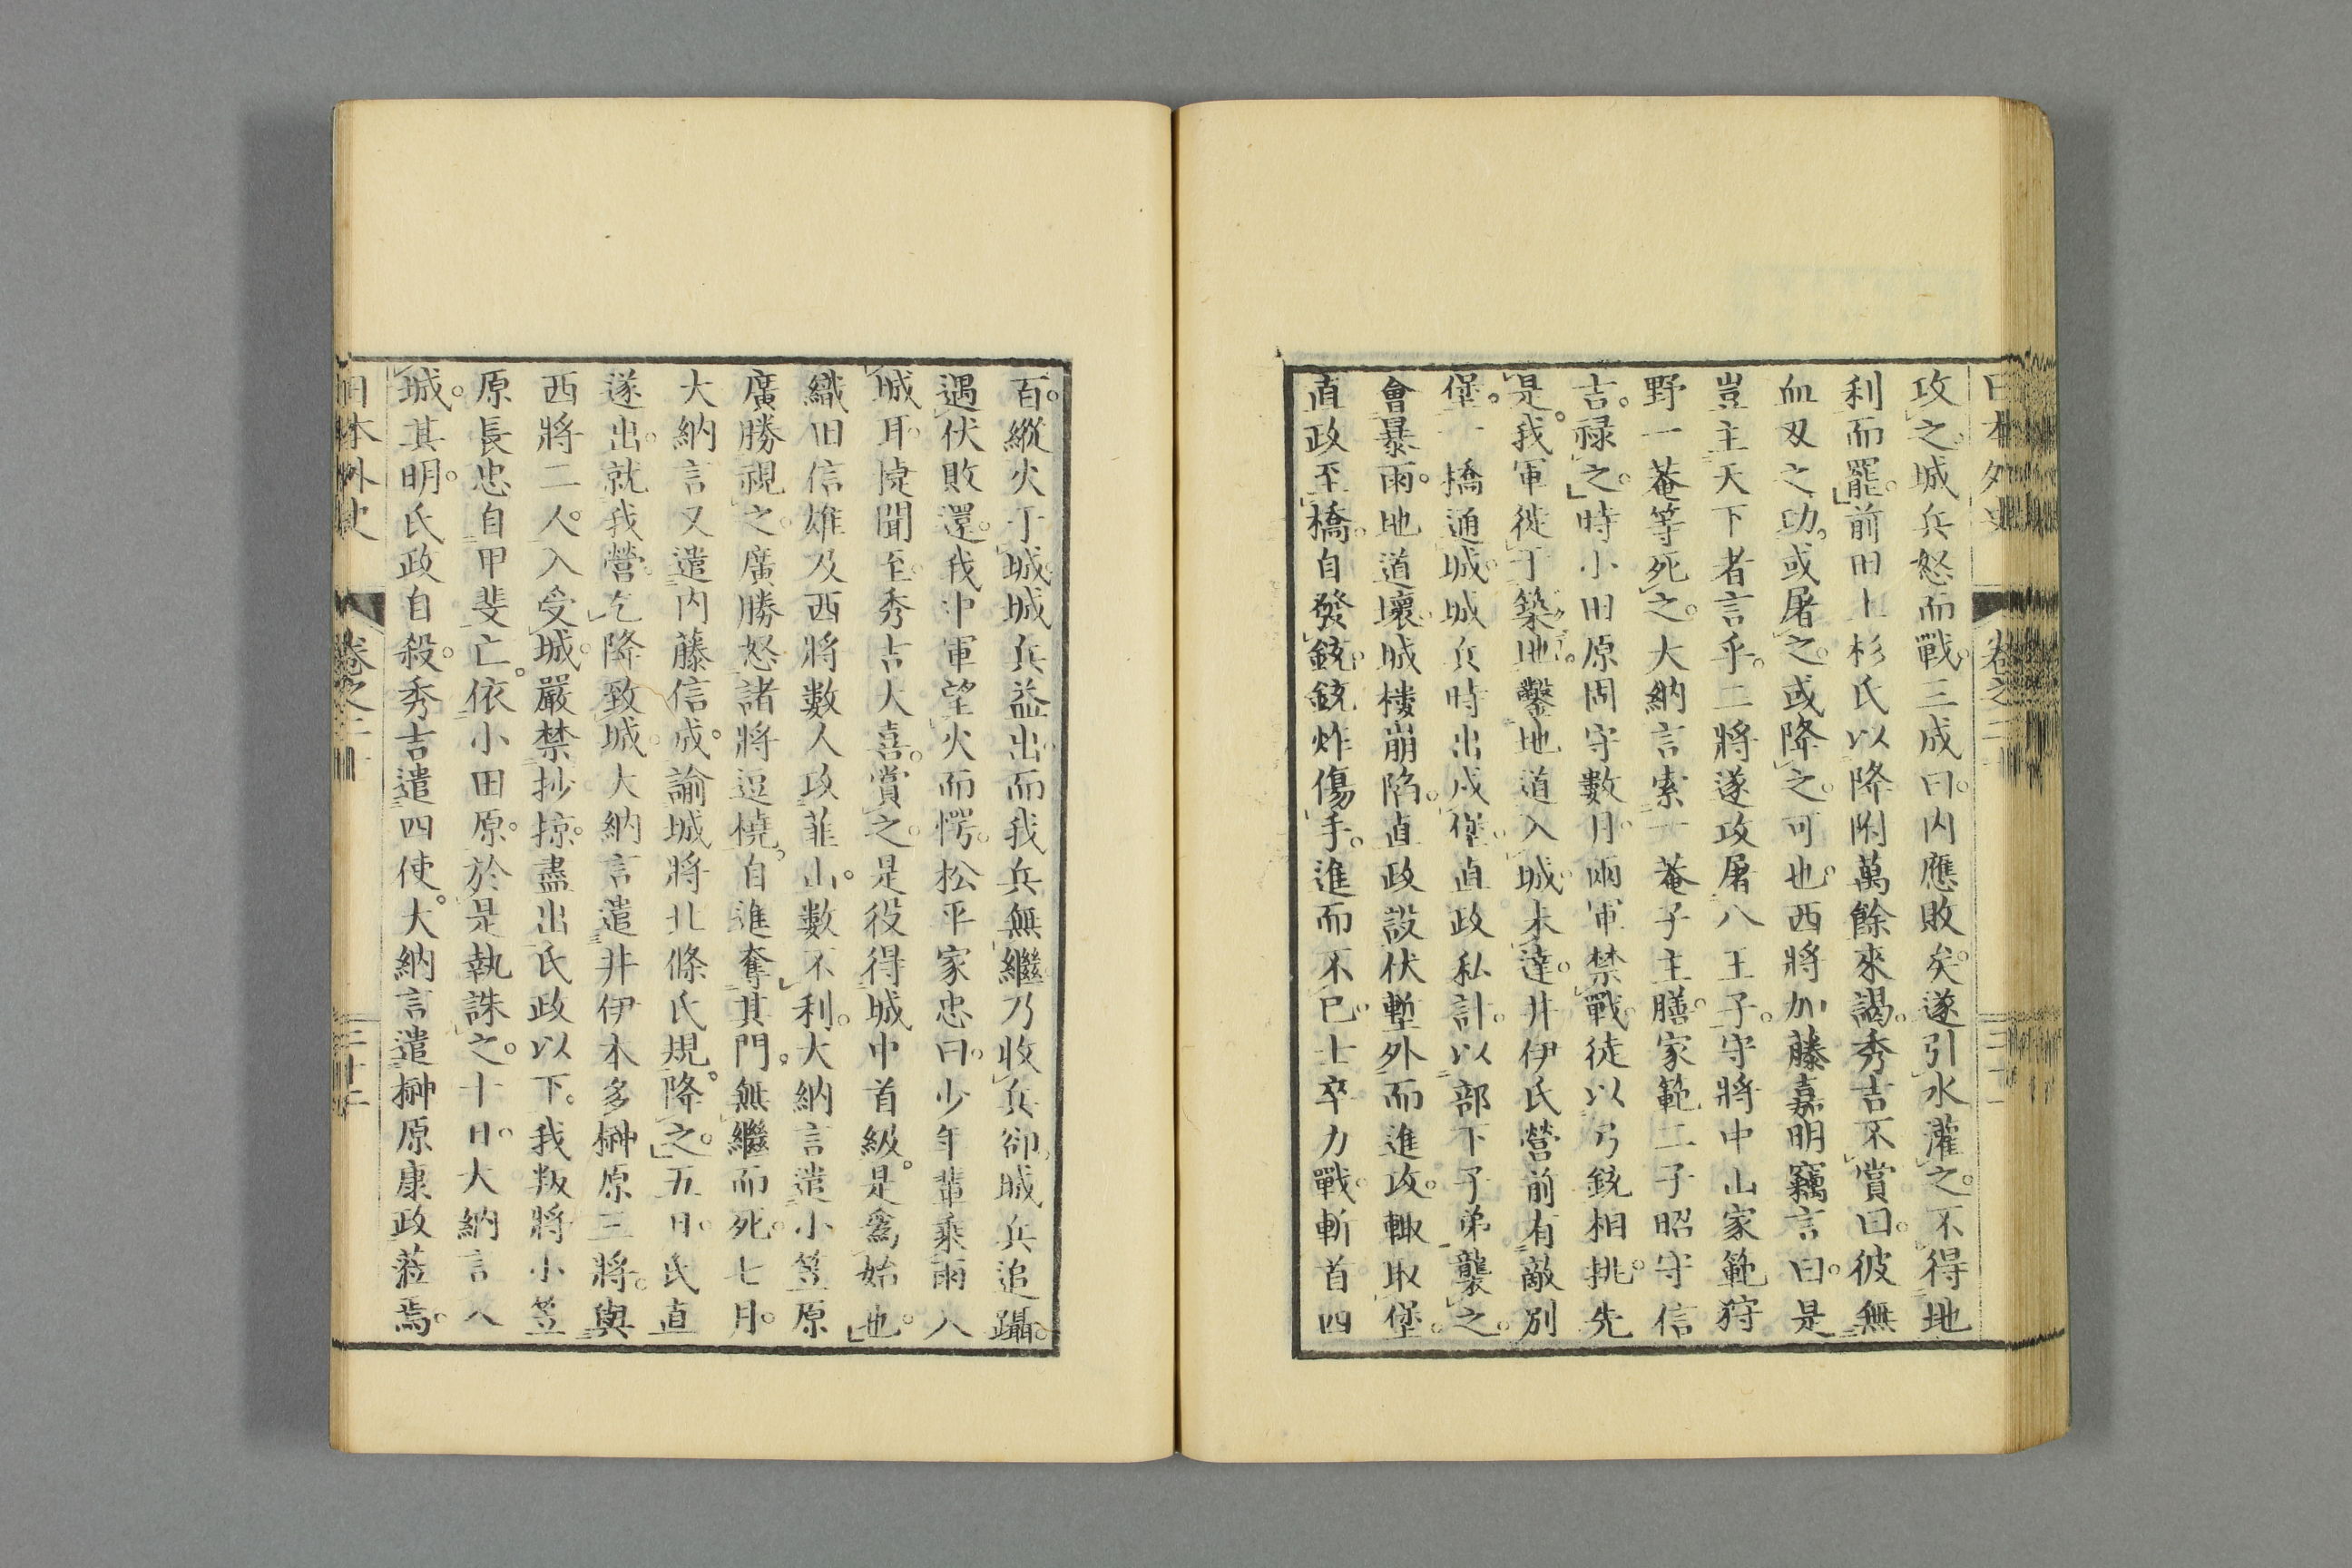 日本外史 卷之二十
攻之。城兵怒而戰。三成曰。內應敗矣。遂引水灌之。不得地
利而罷。前田上杉氏以降附萬餘來謁。秀吉不賞曰。彼無
血刃之功。或屠之。或降之。可也。西將加藤嘉明竊言曰。是
豈主天下者言乎。二將遂攻屠八王子。守將中山家範狩
野一菴等死之。大納言索一菴子主膳。家範二子昭守信
吉。祿之。時小田原固守數月。兩軍禁戰。徒以弓銃相挑。先
是。我軍徙于築地。鑿地道入城。未達。井伊氏營前有敵別
堡。一橋通城。城兵時出戍堡。直政私計。以部下子弟襲之。
會暴雨。地道壞。城樓崩陷。直政設伏塹外而進攻。輙取堡。
直政至橋。自發銃。銃炸傷手。進而不已。士卒力戰。斬首四
百。縱火于城。城兵益出。而我兵無繼。乃收兵卻。城兵追躡。
遇伏敗還。我中軍望火而愕。松平家忠曰。少年輩乘雨入
城耳。捷聞至。秀吉大喜。賞之。是役得城中首級。是爲始也。
織田信雄及西將數人攻韮山。數不利。大納言遣小笠原
廣勝視之。廣勝怒諸將逗橈。自進奪其門。無繼而死。七月。
大納言又遣內藤信成。諭城將北條氏規。降之。五日。氏直
遂出。就我營乞降致城。大納言遣井伊本多榊原三將。與
西將二人。入受城。嚴禁抄掠。盡出氏政以下。我叛將小笠
原長忠自甲斐亡。依小田原。於是執誅之。十日。大納言入
城。其明。氏政自殺。秀吉遣四使。大納言遣榊原康政蒞焉。
日本外史 卷之二十 三十二